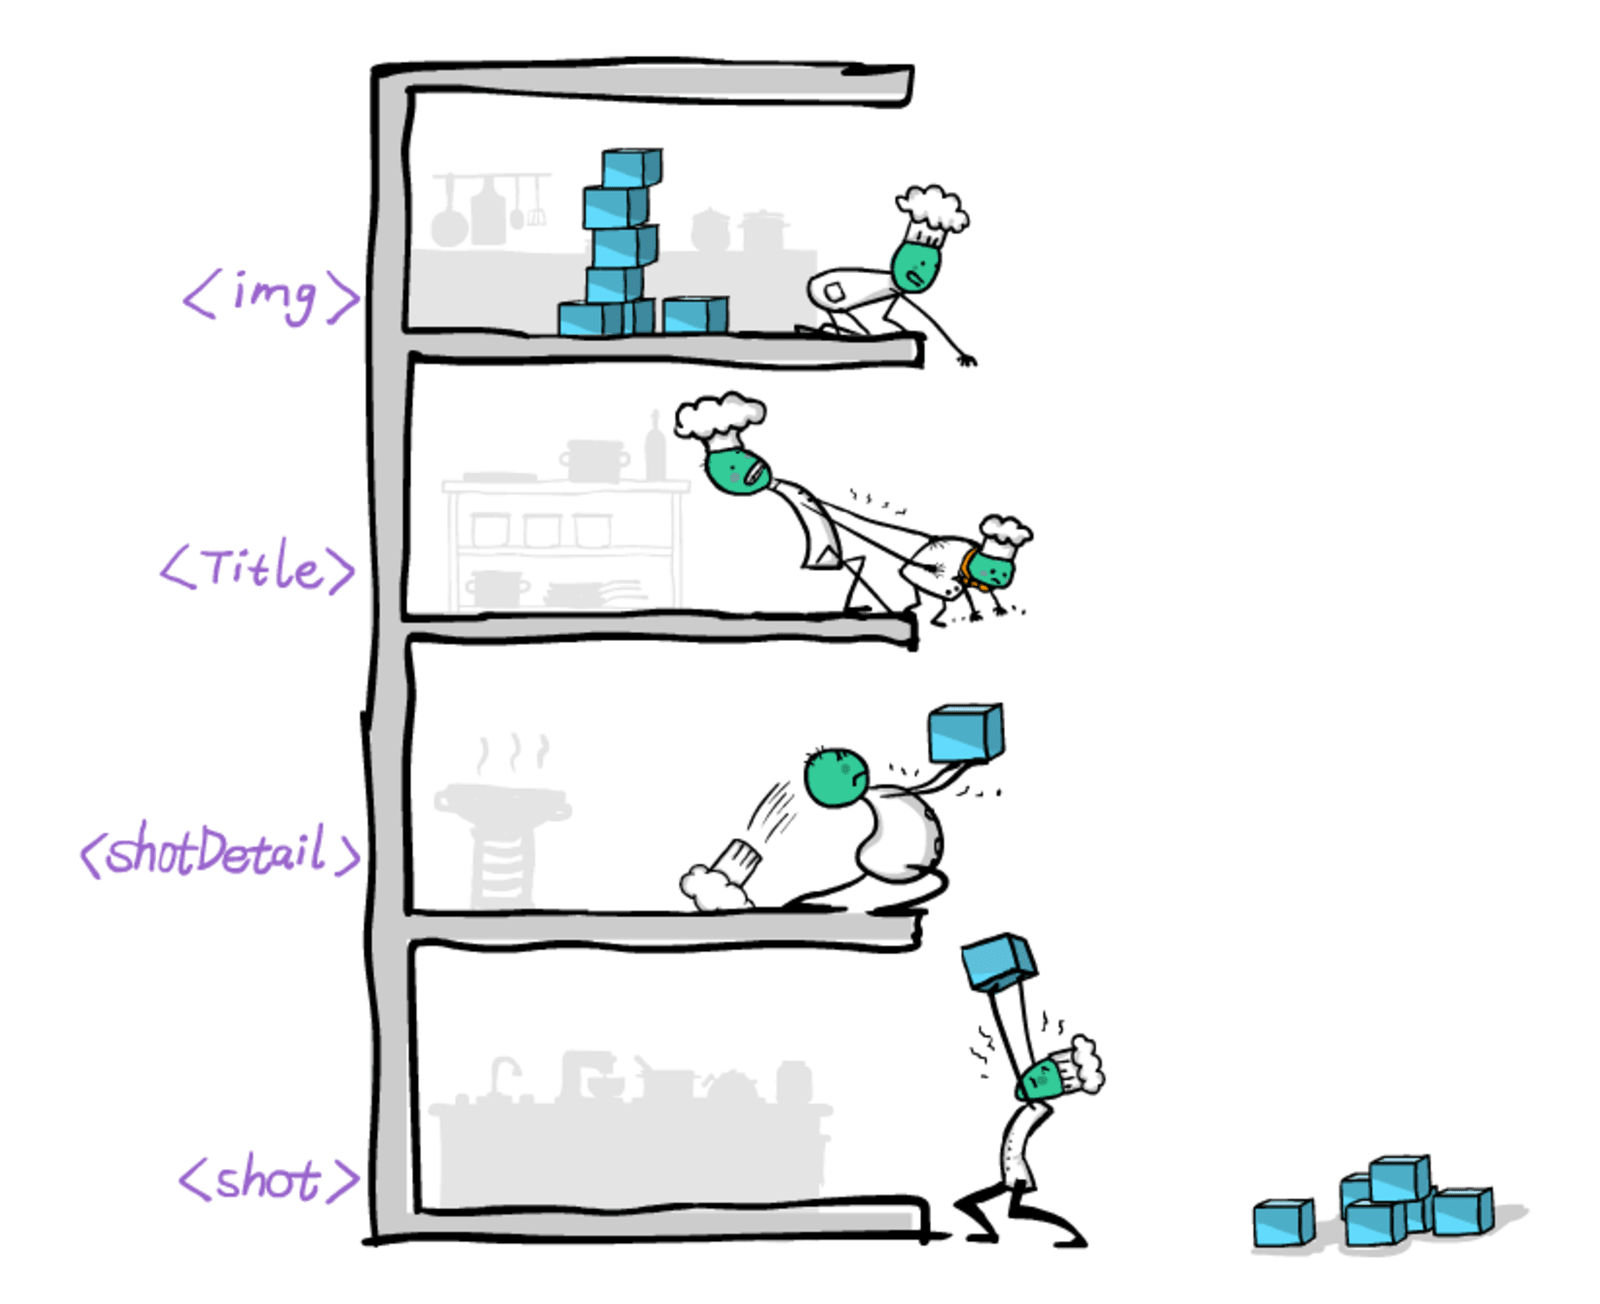 <img>
<Title>
<shotDetail>
<shot>